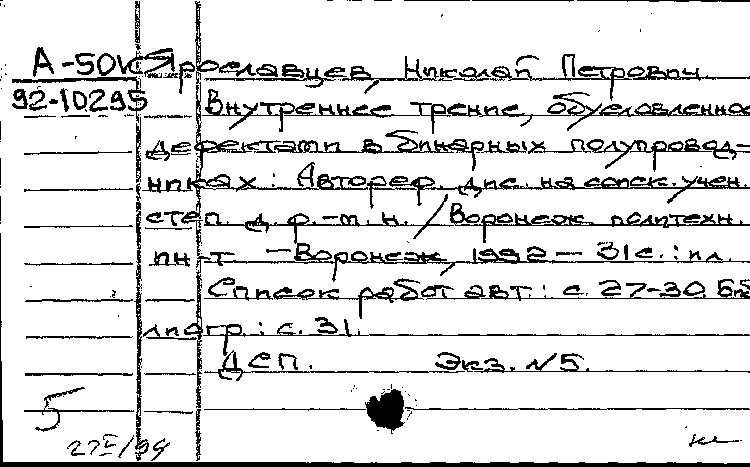 А-50к Ярославцев, Николай Петрович
92-10295 Внутреннее трение, обусловленное
дефектами в бинарных полупровод-
никах: Автореф. дис. на соиск. учен.
степ. д. ф.-м. н. / Воронеж. политехн.
ин-т. – Воронеж, 1992 – 31 с.: ил.
Список работ авт.: с. 27-30. Биб
лиогр.: с. 31.
ДСП. Экз. №5.
5